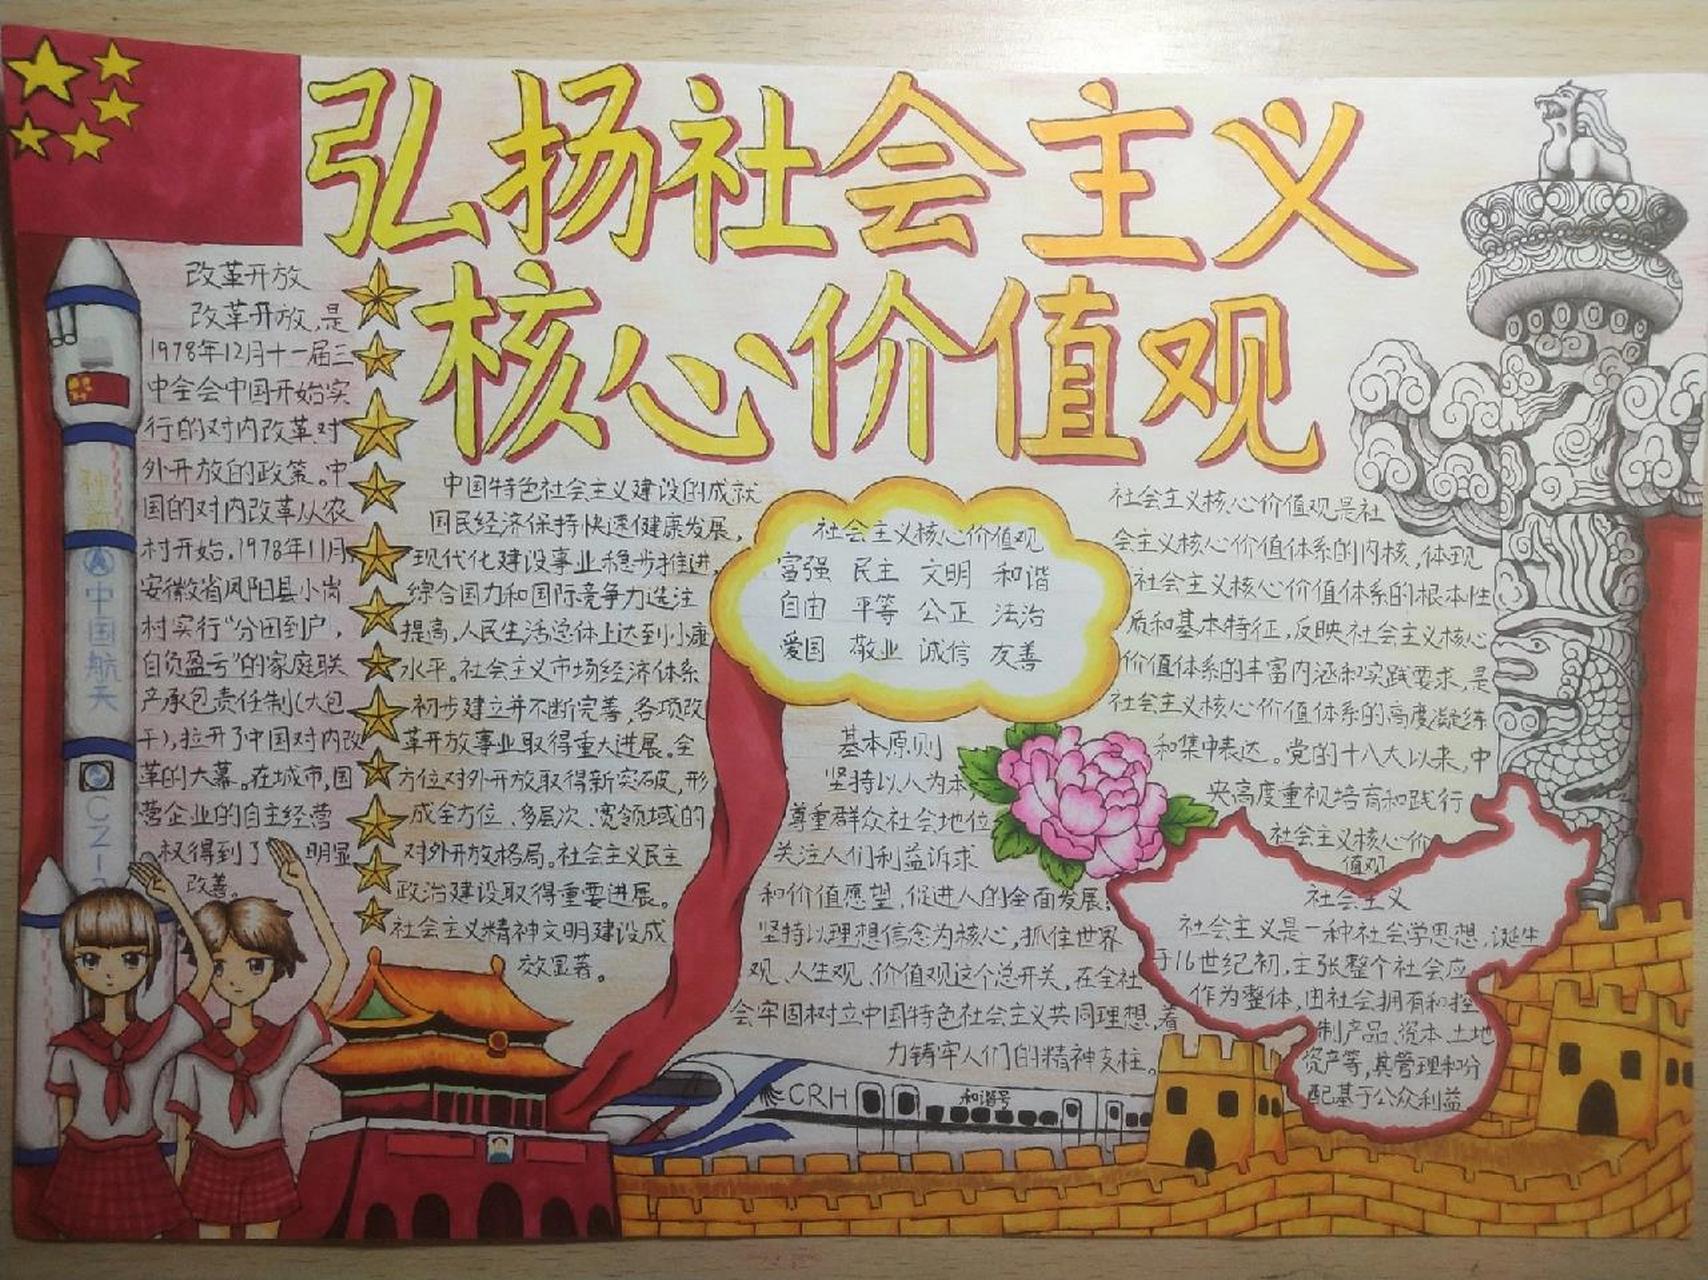 弘扬社会主义
核心价值观
改革开放
改革开放,是
1978年12月十一届三
中全会中国开始实
行的对内改革对
外开放的政策。中
国的对内改革从农
村开始,1978年11月,
安徽省凤阳县小岗
村实行“分田到户,
自负盈亏”的家庭联
产承包责任制(大包
干),拉开了中国对内改
革的大幕。在城市,国
营企业的自主经营
权得到了明显
改善。
中国特色社会主义建设的成就
国民经济保持快速健康发展,
现代化建设事业稳步推进,
综合国力和国际竞争力选注
提高,人民生活总体上达到小康
水平。社会主义市场经济体系
初步建立并不断完善,各项改
革开放事业取得重大进展。全
方位对外开放取得新突破,形
成全方位、多层次、宽领域的
对外开放格局。社会主义民主
政治建设取得重要进展。
社会主义精神文明建设成
效显著。
社会主义核心价值观
富强 民主 文明 和谐
自由 平等 公正 法治
爱国 敬业 诚信 友善
基本原则
坚持以人为本,
尊重群众社会地位
关注人们利益诉求
和价值愿望,促进人的全面发展;
坚持以理想信念为核心,抓住世界
观、人生观、价值观这个总开关,在全社
会牢固树立中国特色社会主义共同理想,着
力铸牢人们的精神支柱。
社会主义核心价值观是社
会主义核心价值体系的内核,体现
社会主义核心价值体系的根本性
质和基本特征,反映社会主义核心
价值体系的丰富内涵和实践要求,是
社会主义核心价值体系的高度凝练
和集中表达。党的十八大以来,中
央高度重视培育和践行
社会主义核心价
值观
社会主义
社会主义是一种社会学思想,诞生
于16世纪初,主张整个社会应
作为整体,由社会拥有和控
制产品、资本、土地
资产等,其管理和分
配基于公众利益
神箭
中国航天
CZ-2
CRH
和谐号